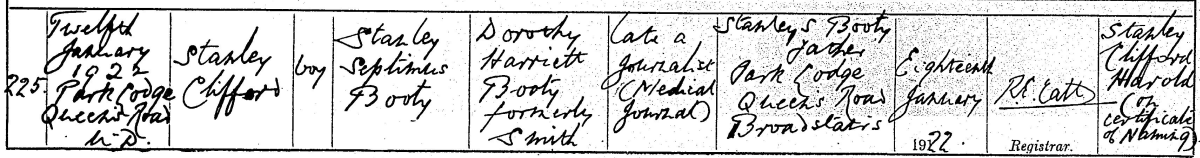 225.
Twelfth
January
1922
Park Lodge
Queen's Road
U.D.
Stanley
Clifford
boy
Stanley
Septimus
Booty
Dorothy
Harriett
Booty
formerly
Smith
Late a
Journalist
(Medical
Journal)
Stanley S Booty
Father
Park Lodge
Queen's Road
Broadstairs
Eighteenth
January
1922.
R.E. Catt
Registrar.
Stanley
Clifford
Harold
(on
certificate
of Naming)